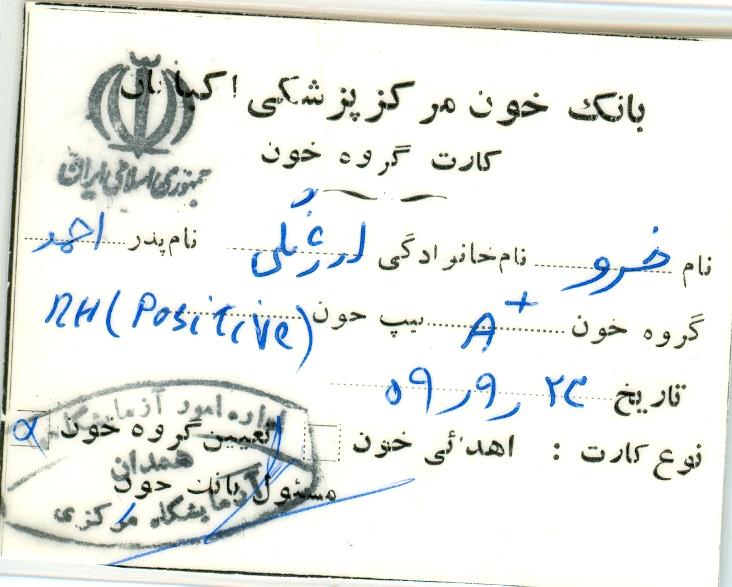 بانک خون مرکز پزشکی اکباتان
جمهوری اسلامی ایران
کارت گروه خون
نام خسرو نام خانوادگی نام پدر احمد
گروه خون A+ تیپ خون RH (Positive)
تاریخ ۵۹/۹/۲۳
نوع کارت : اهدائی خون تعیین گروه خون
مسئول بانک خون
اداره امور آزمایشگاههای
همدان
آزمایشگاه مرکزی